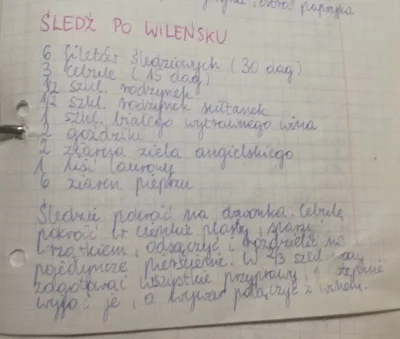 extra papryka
ŚLEDŹ PO WILEŃSKU
6 filetów śledziowych (30 dag)
3 cebule (15 dag)
1/2 szkl. rodzynek
1/2 szkl. rodzynek sułtanek
1 szkl. białego wytrawnego wina
2 goździki
2 ziarna ziela angielskiego
1 liść laurowy
6 ziaren pieprzu
Śledzie pokroić na dzwonka. Cebulę
pokroić w cienkie plastry, sparzyć
wrzątkiem, odsączyć i rozdzielić na
pojedyncze pierścienie. W 2/3 szkl.
zagotować wszystkie przyprawy,
wyjąć je, a wywar połączyć z winem.